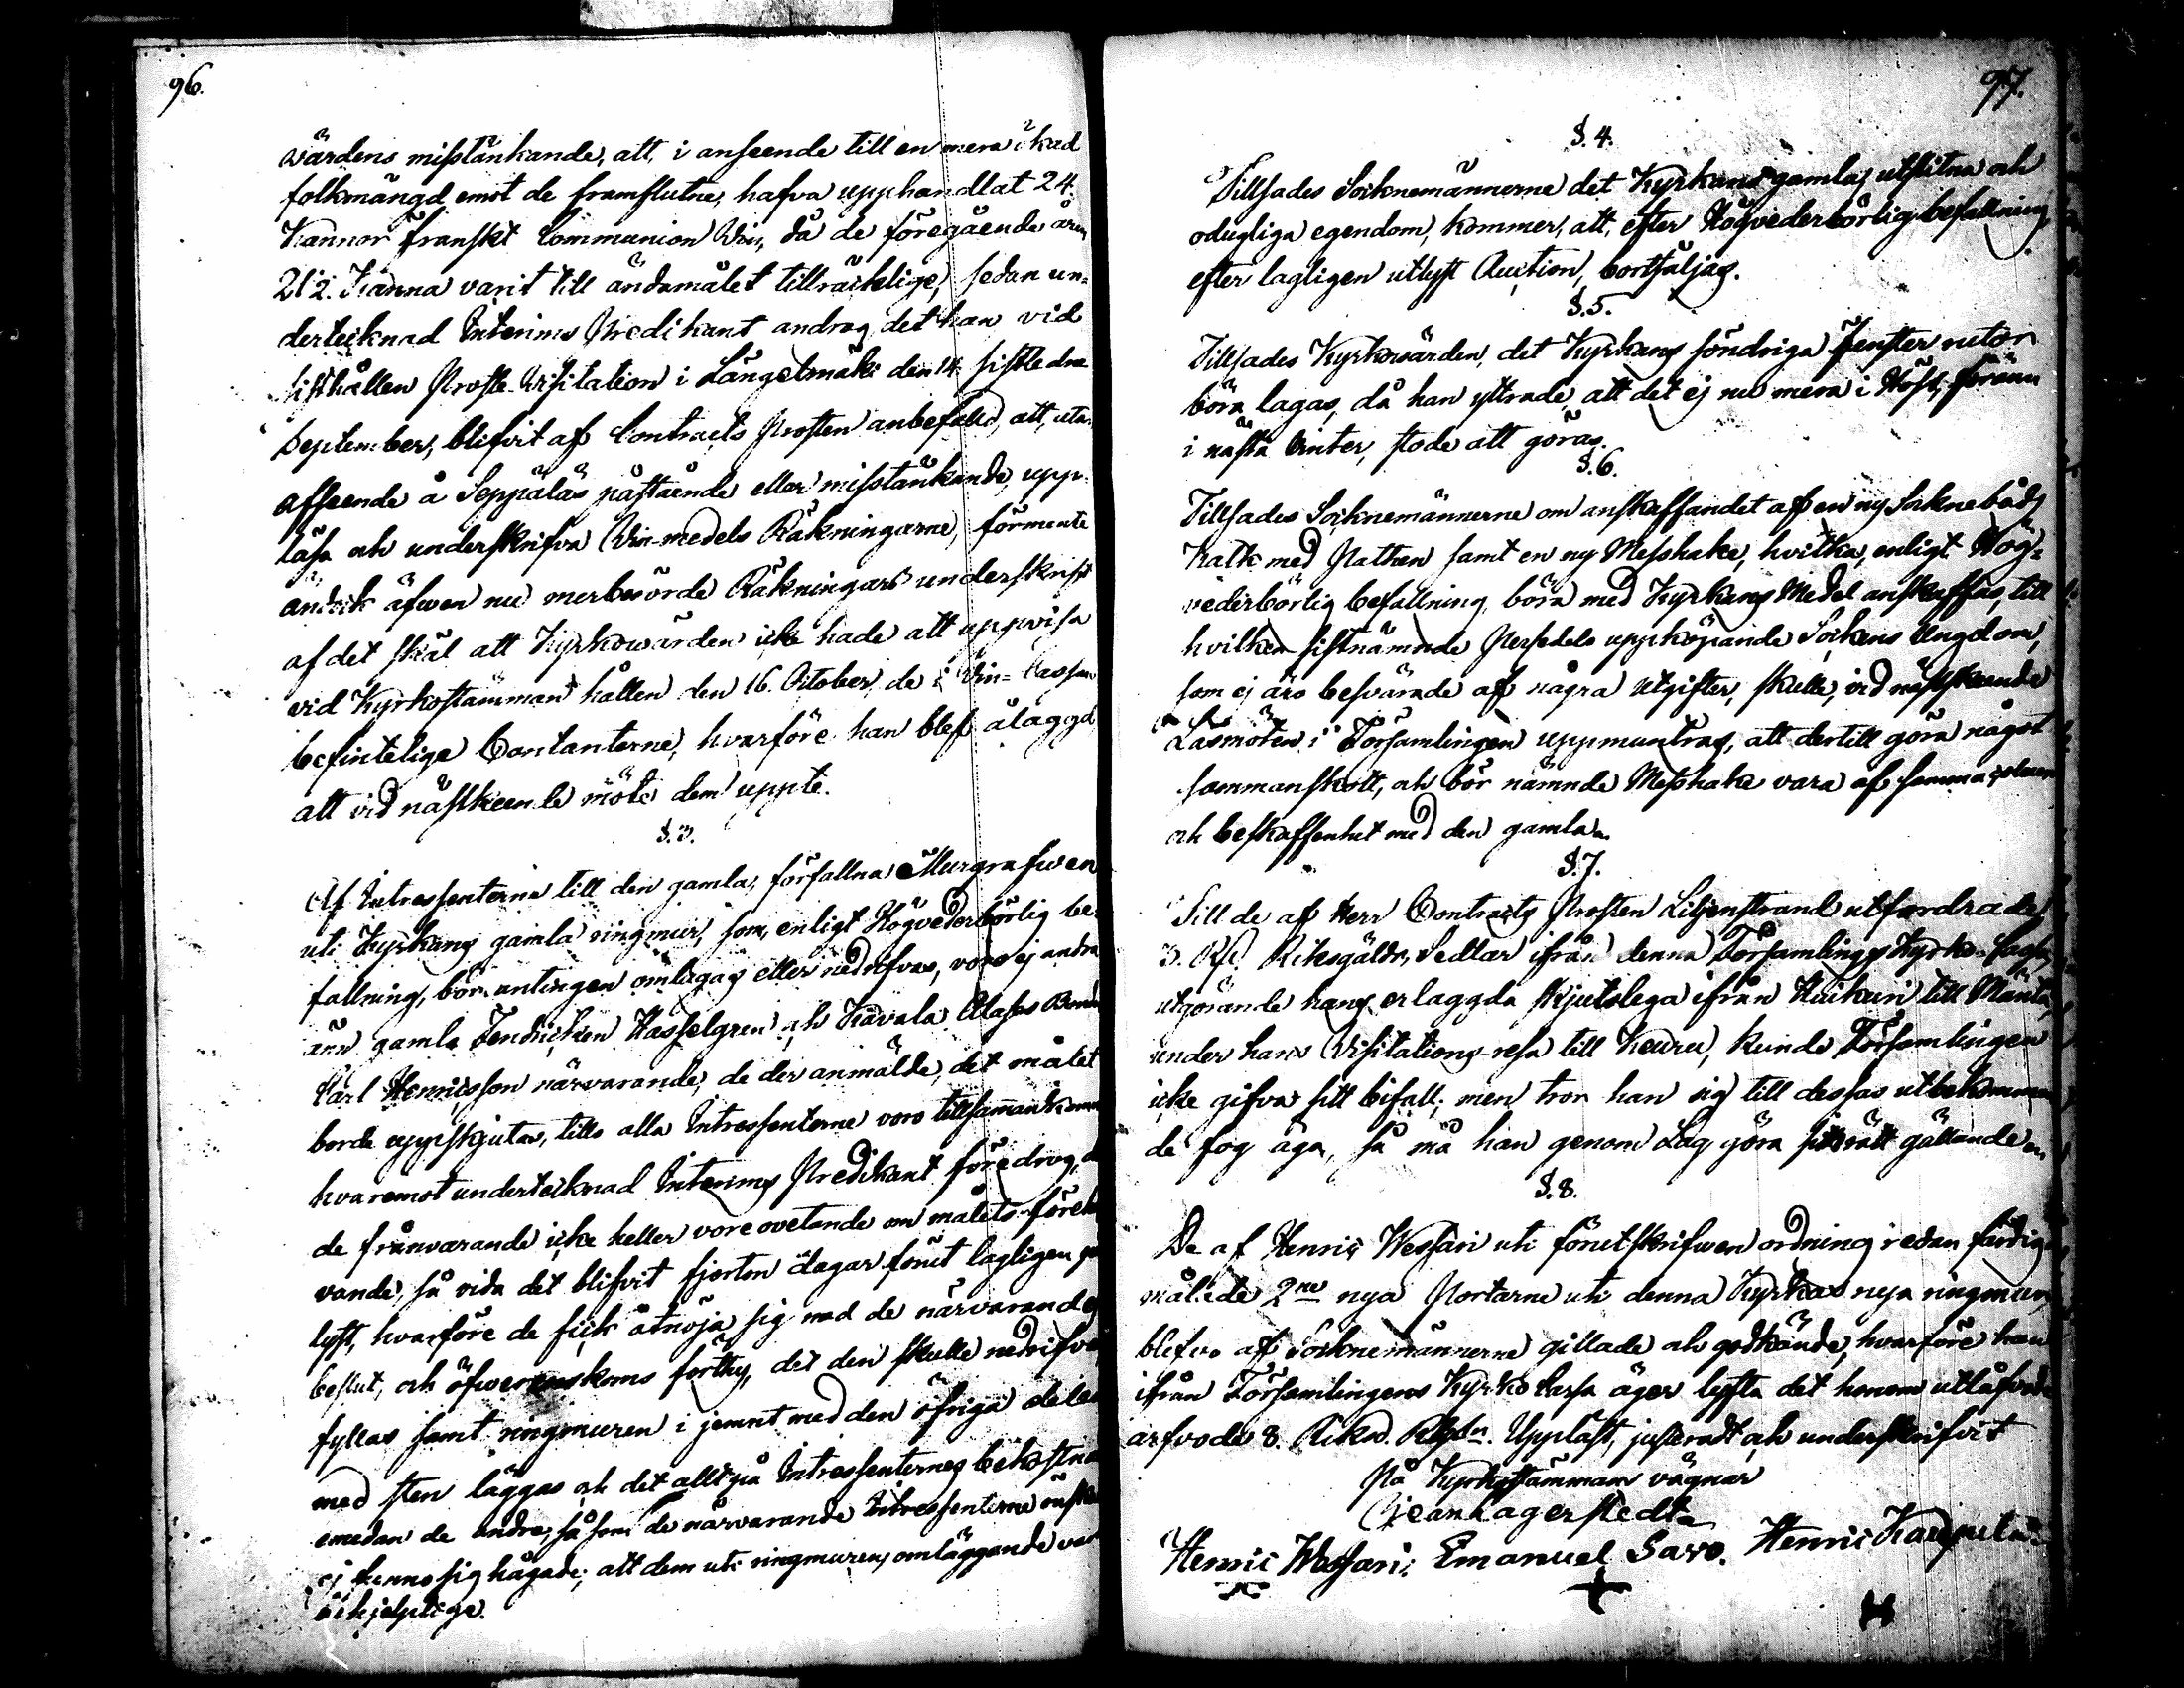 96.
wärdens misstänkande, att, i anseende till en mera ökad
folkmängd emot de framflutne, hafva upphandlat 24.
Kannor franskt Communion Vin, då de föregående åren
21½. Kanna varit till ändamålet tillräckelige, sedan un-
dertecknad Interims Predikant androg, det han vid
sisthållen Prosts Visitation i Längelmäki den 14 sistledne
September, blifvit af Contracts Prosten anbefalld, att, utan
afseende å Seppäläs påstående eller misstänkande, upp-
läsa och underskrifva Vin-medels Räkningarne, förmente
äfwen nu merberörde Räkningars underskrift
af det skäl att Kyrkowärden icke hade att uppvisa
vid Kyrkostämman hållen den 16. October, de i Vin-Cassan
befintelige Contanterne, hvarföre han blef ålaggd
att vid nästkeende möte dem uppte.
§. 3.
Af Intressenterne till den gamla, förfallna Murgrafwen
uti Kyrkans gamla ringmur, som, enligt Högvederbörlig be-
fallning, bör antingen omlagas eller nedrifvas, voro ej andra
änn gamle Fendricken Hasselgren och Kavala
Carl Henricsson närvarande, de der anmälde, det målet
borde uppskjutas, tills alla Intressenterne voro tillsammankomne
hvaremot undertecknad Interims Predikant föredrog, det
de frånvarande icke heller vore ovetande om målets föreha-
vande, så vida det blifvit fjorton dagar förut lagligen
lyst, hvarföre de fick åtnöja sig med de närvarandes
beslut, och öfwerenskoms förthy, det den skulle nedrifvas
fyllas samt ringmuren i jemnt med den öfriga delen
med sten läggas och det allt på Intressenternes bekostnad
emedan de andre, så som de närvarande Intressenterne önska
ej kunna sig hågade, att dem uti ringmurens omläggande vara
behjelplige.
97.
§. 4.
Tillsades Socknemännerne det Kyrkans gamla, utslitna och
odugliga egendom, kommer, att, efter Högvederbörlig befallning,
efter lagligen utlyst Auction, bortsäljas.
§. 5.
Tillsades Kyrkowärden, det Kyrkans söndriga Fenster rutor
böra lagas, då han yttrade, att det ej nu mera i Höst, föränn
i nästa Vinter, stode att göras.
§. 6.
Tillsades Socknemännerne om anskaffandet af en ny Socknebåds
Kalk med Patthen samt en ny Messhake, hvilka, enligt Hög-
vederbörlig befallning, böra med Kyrkans Medel anskaffas, till
hvilken sistnämnde Persedels uppköpande Sockens Ungdom,
som ej äro besvärade af några Utgifter, skulle, vid nästskeende
Läsmöten i Församlingen uppmuntras, att dertill göra något
sammanskott, och bör nämnde Messhake vara af samma
och beskaffenhet med den gamla.
§. 7.
Till de af Herr Contracts Prosten Liljenstrand utfordrade,
3. Rd. Riksgälds Sedlar ifrån denna Församlings Kyrko-Cassa,
utgörande hans erlaggda skjutslega ifrån Huikuri till Mänta,
under hans Visitations-resa till Keuru, kunde Församlingen
icke gifva sitt bifall; men tror han sig till dessas utbekomman-
de fog äga, så må han genom Lag göra sin rätt gällande.
§. 8.
De af Henric Wessari uti förutskrifwen ordning redan färdig
målade 2ne nya Portarne uti denna Kyrkas nya ringmur,
blefvo af Socknemännerne gillade och godkände, hvarföre han
ifrån Församlingens Kyrko Cassa äger lyfta det honom utlåfvade
arfvode 8. Riksd. Uppläst, justeradt och underskrifvit
På Kyrkostämmans vägnar
Jean Lagerstedt
Henric Wessari. Emanuel Savo. Henric